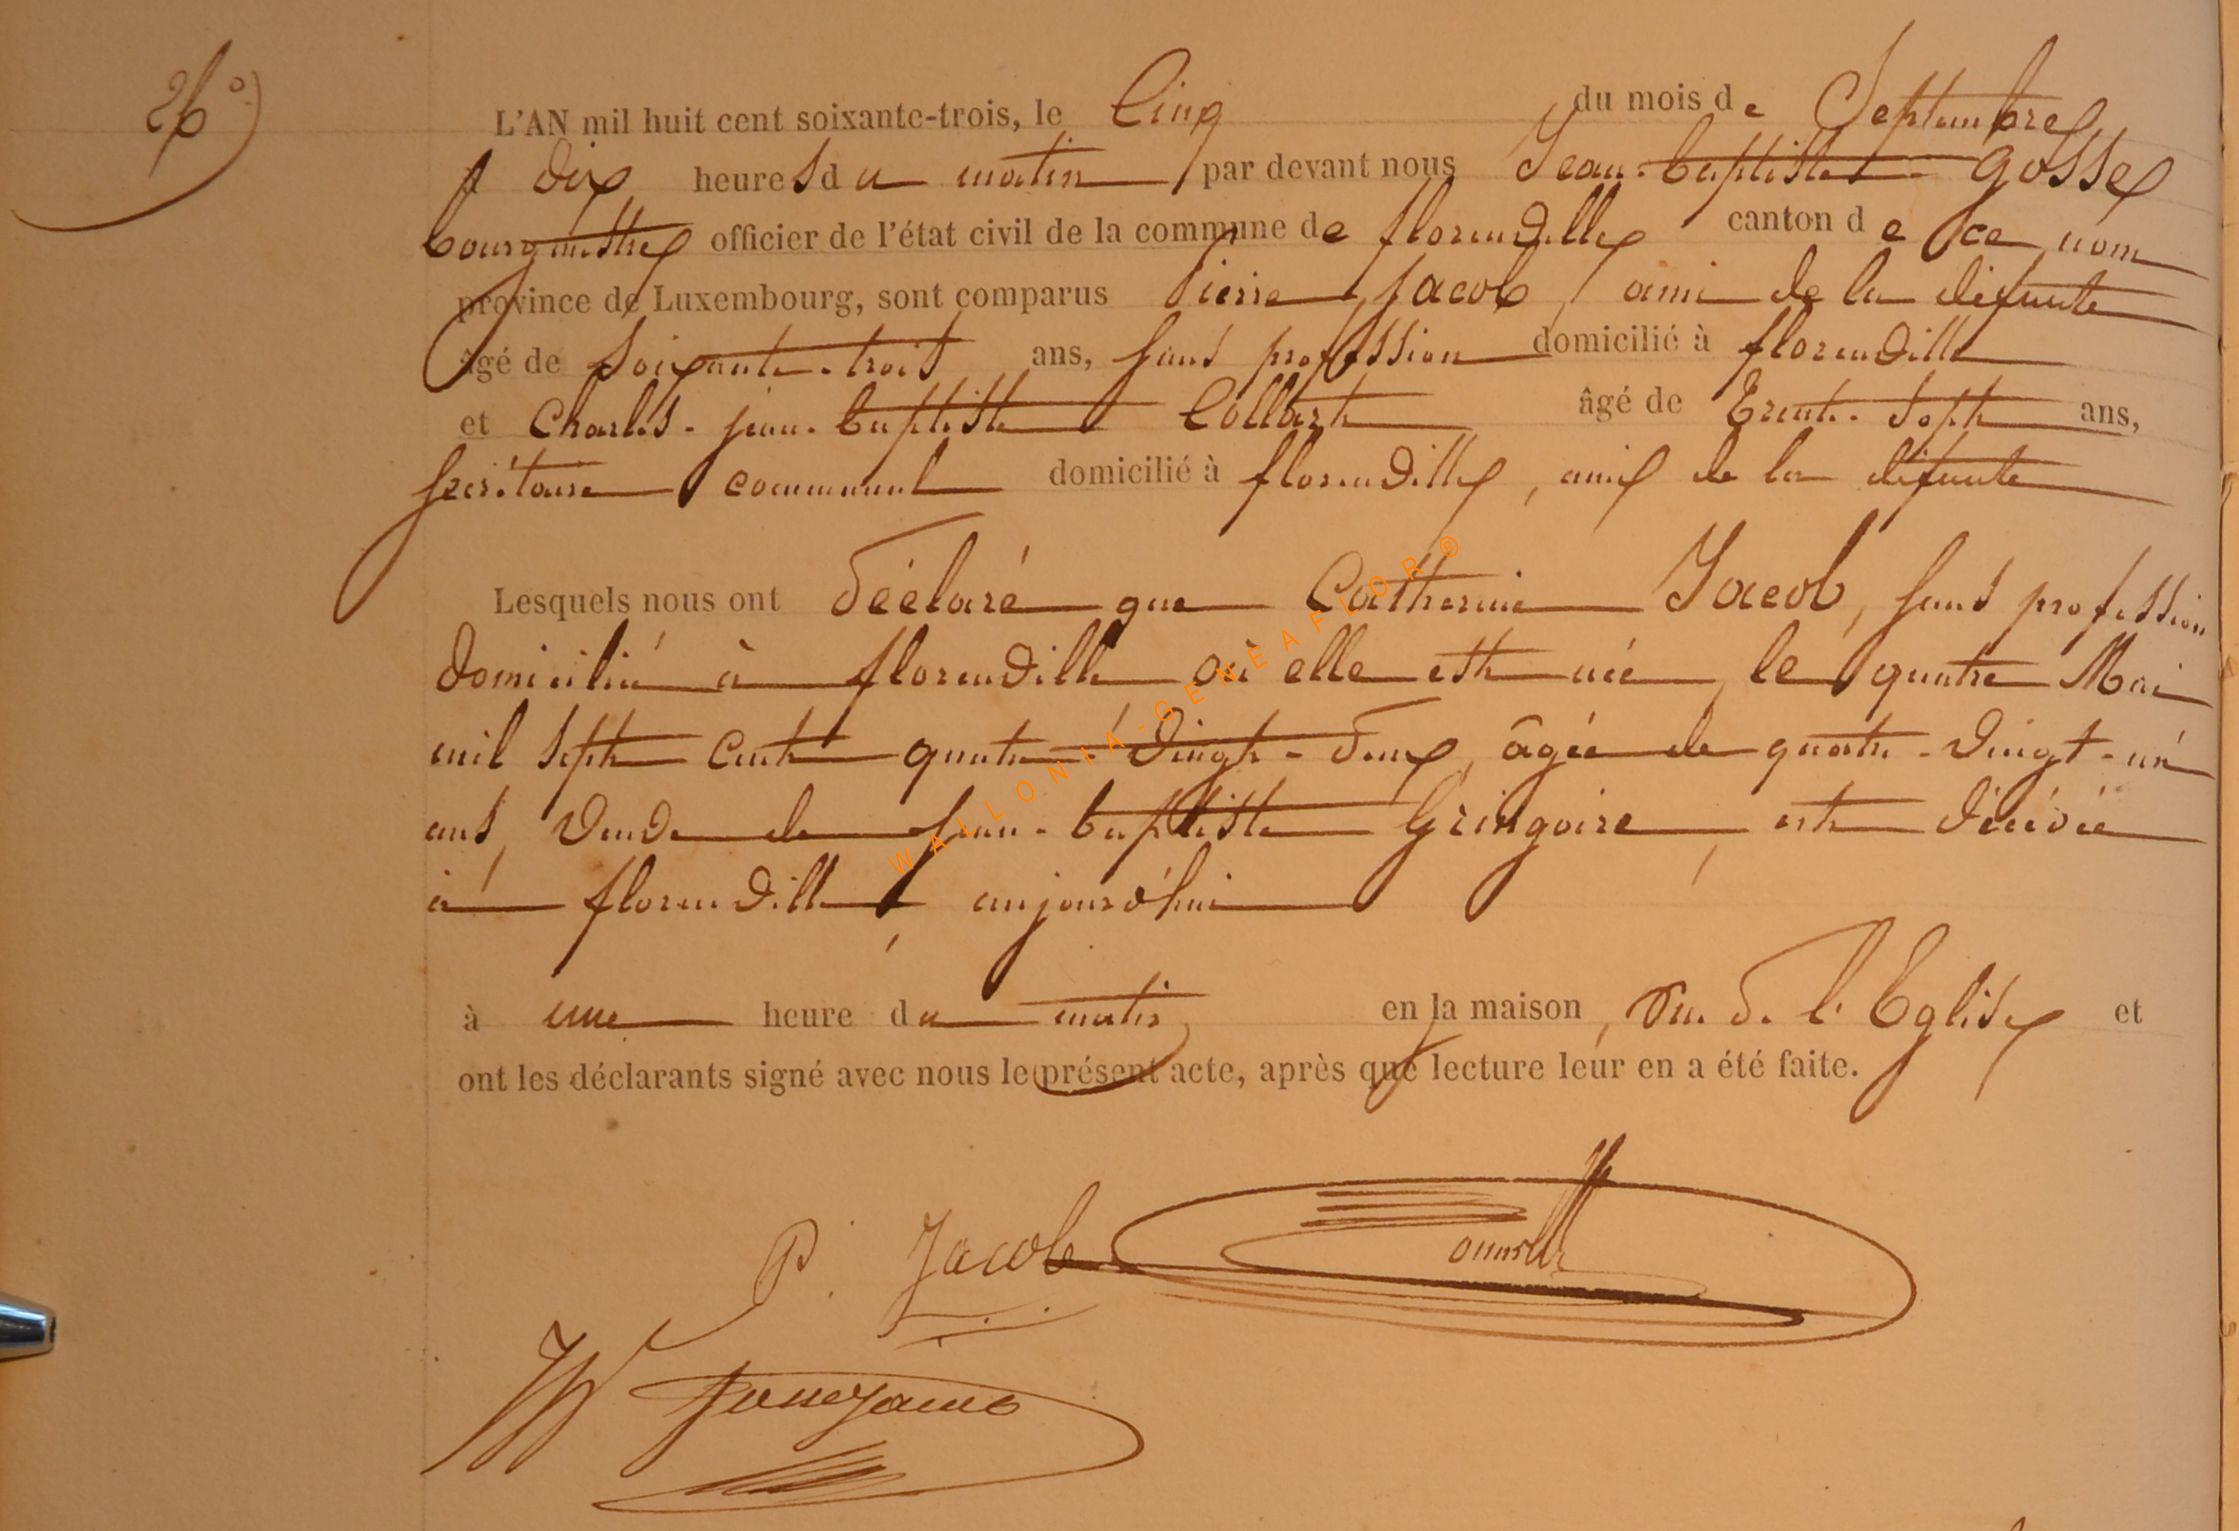 26°
L'AN mil huit cent soixante-trois, le Cinq du mois de Septembre
à dix heures du matin par devant nous Jean-baptiste gosse
bourgmestre officier de l'état civil de la commune de florenville canton de ce nom
province de Luxembourg, sont comparus Pierre Jacob, ami de la défunte
âgé de soixante-trois ans, sans profession domicilié à florenville
et Charles-jean-baptiste Collart âgé de Trente-Sept ans,
secrétaire communal domicilié à florenville, ami de la défunte
Lesquels nous ont déclaré que Catherine Jacob, sans profession
domiciliée à florenville où elle est née le quatre Mai
mil sept cent quatre-vingt-deux, âgée de quatre-vingt-un
ans, veuve de jean-baptiste Gringoire, est décédée
à florenville, aujourd'hui
à une heure du matin en la maison, rue de l'Eglise et
ont les déclarants signé avec nous le présent acte, après que lecture leur en a été faite.
P. Jacob
WALLONIA-GENEAFLOR®